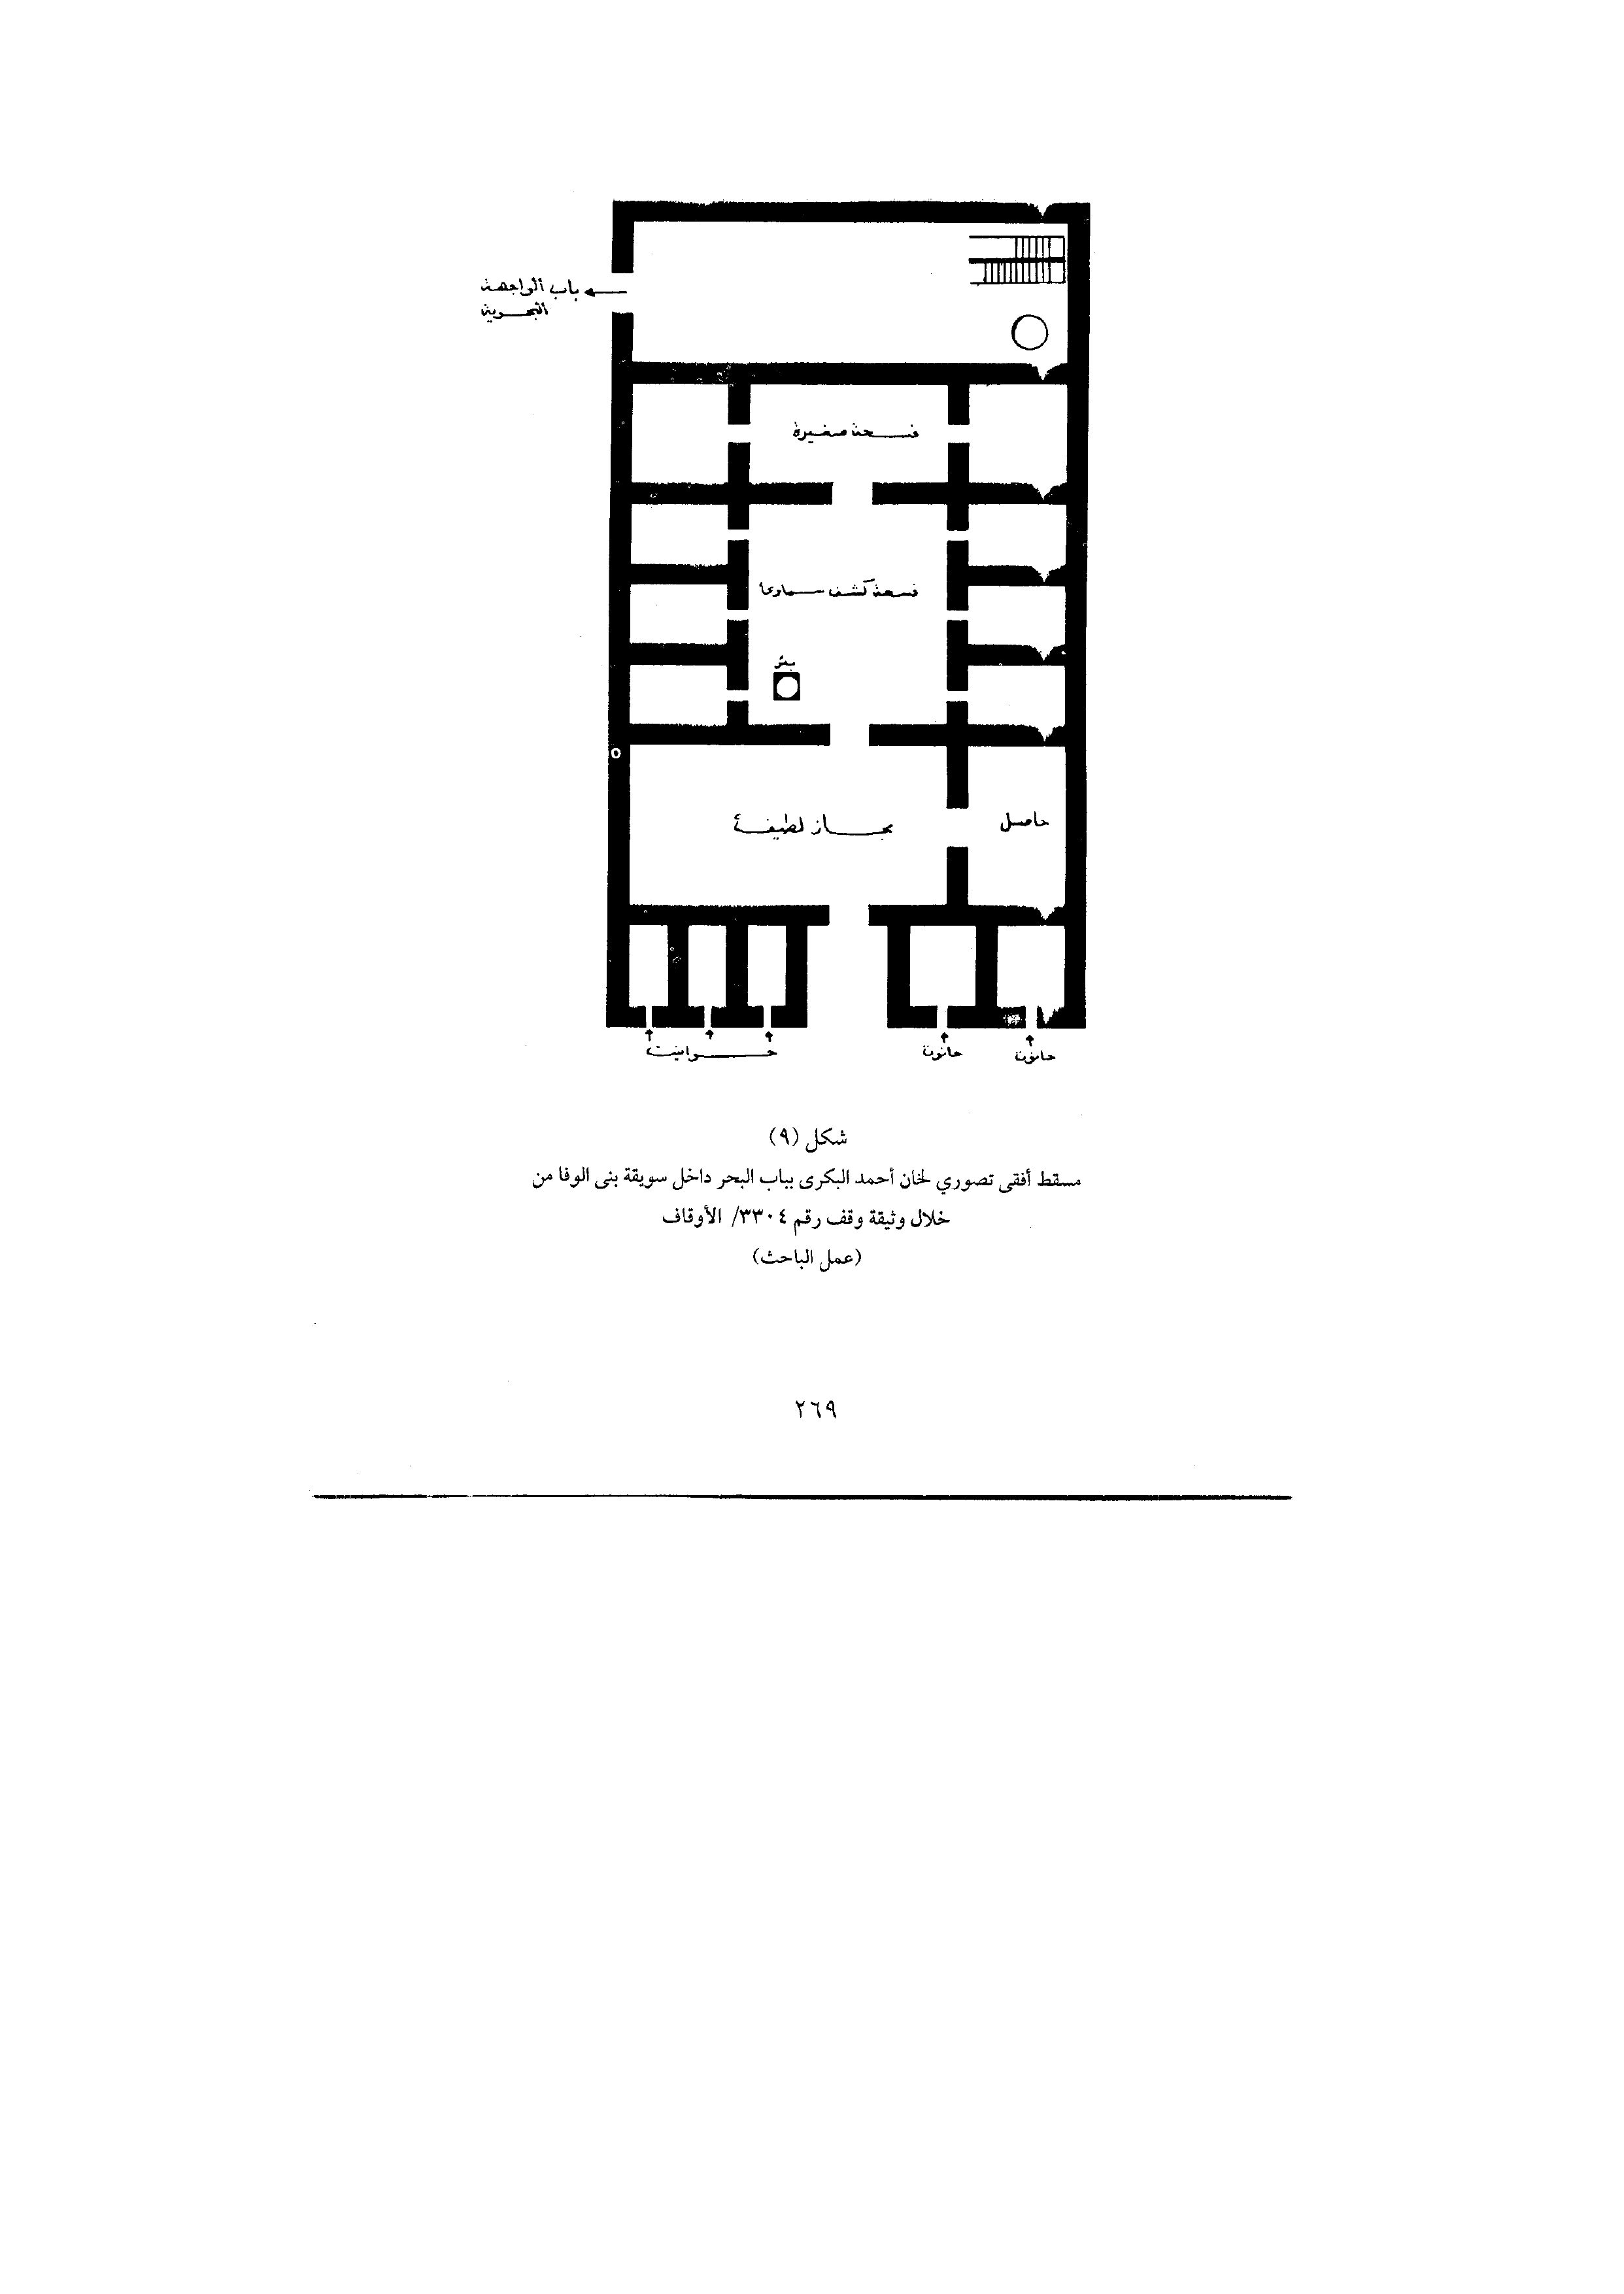 باب الواجهة
البحرية
فسحة صغيرة
فسحة كشف سماوى
بئر
مجاز لطيف
حاصل
حوانيت
حانوت
حانوت
شكل (٩)
مسقط أفقى تصوري لخان أحمد البكرى بباب البحر داخل سويقة بنى الوفا من
خلال وثيقة وقف رقم ٣٣٠٤/ الأوقاف
(عمل الباحث)
٢٦٩